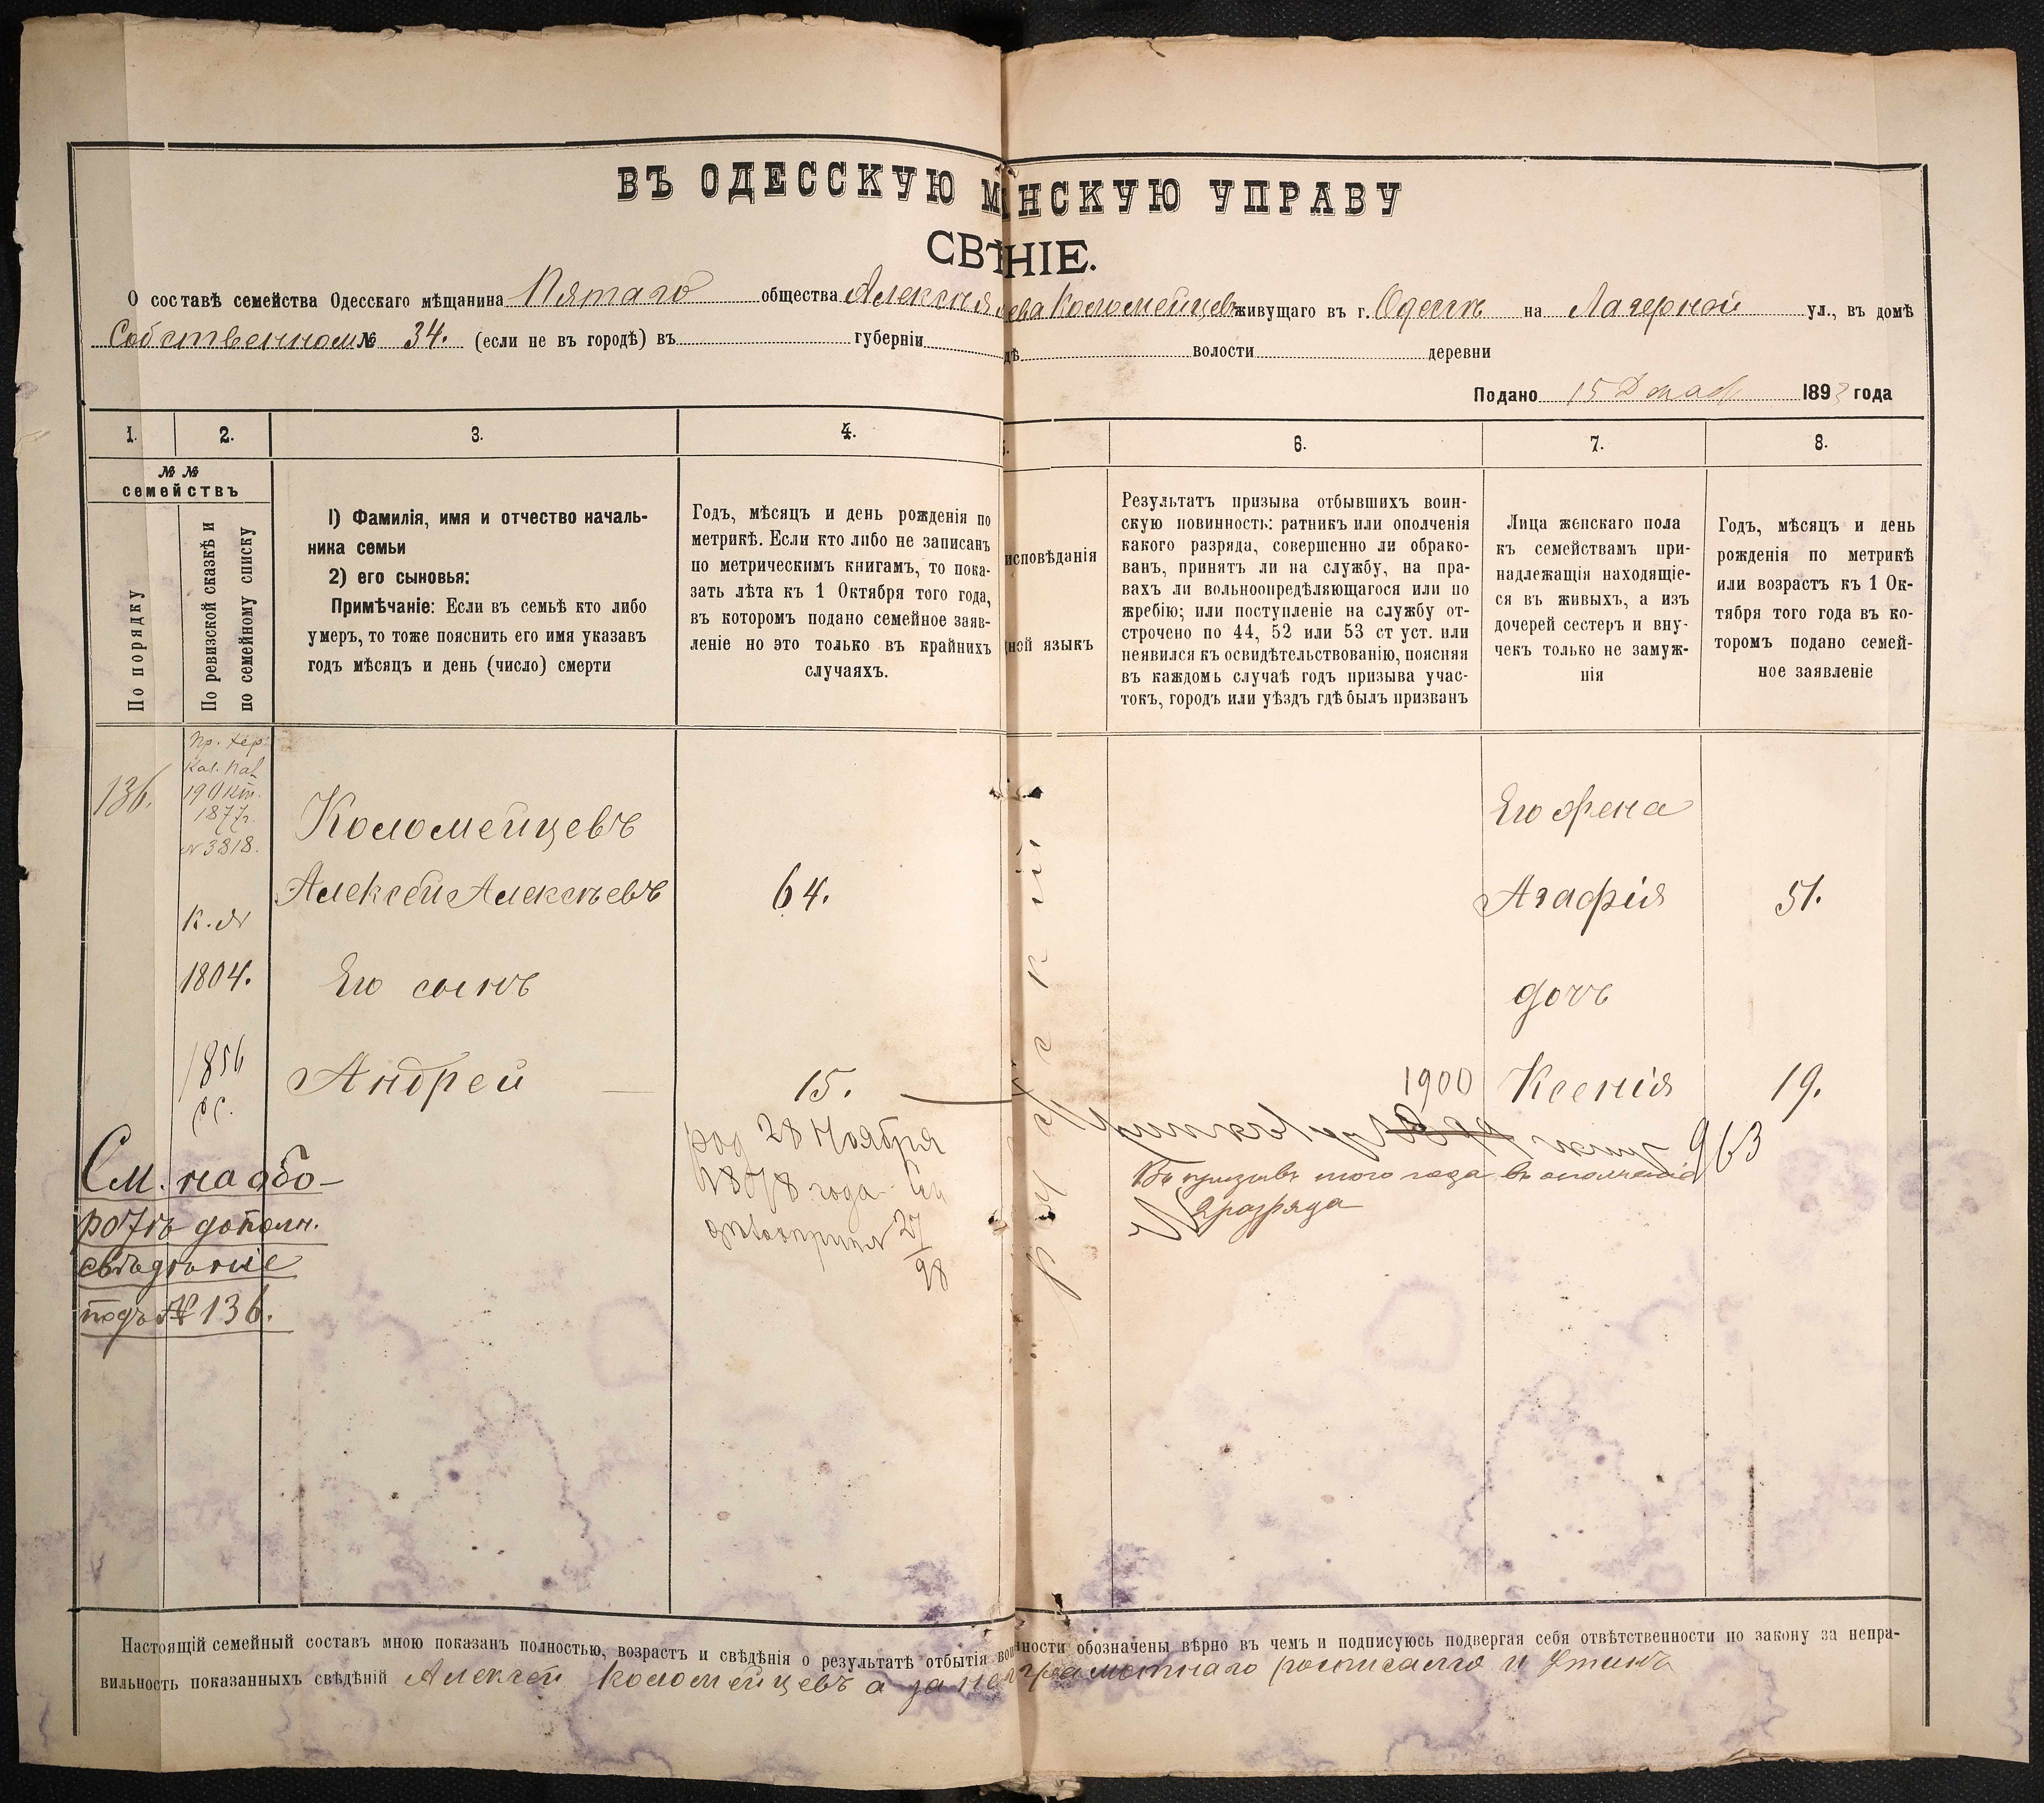 ВЪ ОДЕССКУЮ М НСКУЮ УПРАВУ
СВѢ НІЕ.
О составѣ семейства Одесскаго мѣщанина Пятаго общества Алексѣя ева Коломейцевъ живущаго въ г. Одессѣ на Лагерной ул., въ домѣ
Собственном № 34. (если не въ городѣ) въ губерніи дѣ волости деревни
Подано 15 Декаб 1893 года
1. 2. 3. 4. 5. 6. 7. 8.
№ №
семействъ
По порядку
По ревизской сказкѣ и
по семейному списку
1) Фамилія, имя и отчество началь-
ника семьи
2) его сыновья:
Примѣчаніе: Если въ семьѣ кто либо
умеръ, то тоже пояснить его имя указавъ
годъ мѣсяцъ и день (число) смерти
Годъ, мѣсяцъ и день рожденія по
метрикѣ. Если кто либо не записанъ
по метрическимъ книгамъ, то пока-
зать лѣта къ 1 Октября того года,
въ которомъ подано семейное заяв-
леніе но это только въ крайнихъ
случаяхъ.
исповѣданія
ной языкъ
Результатъ призыва отбывшихъ воин-
скую повинность: ратникъ или ополченія
какого разряда, совершенно ли обрако-
ванъ, принятъ ли на службу, на пра-
вахъ ли вольноопредѣляющагося или по
жребію; или поступленіе на службу от-
строчено по 44, 52 или 53 ст уст. или
неявился къ освидѣтельствованію, поясняя
въ каждомъ случаѣ годъ призыва учас-
токъ, городъ или уѣздъ гдѣ былъ призванъ
Лица женскаго пола
къ семействамъ при-
надлежащія находящіе-
ся въ живыхъ, а изъ
дочерей сестеръ и вну-
чекъ только не замуж-
нія
Годъ, мѣсяцъ и день
рожденія по метрикѣ
или возрастъ къ 1 Ок-
тября того года въ ко-
торомъ подано семей-
ное заявленіе
136.
Пр. Хер.
Каз. Пал
19 Окт.
1877г.
№ 3818.
Коломейцевъ
Его жена
Алексей Алексѣевъ 64. Агафія 51.
К. №
1804. Его сынъ дочь
1856 Андрей 15. 1900 Ксенія 19.
р с.
русскій
род 28 Ноября
1878 года
27
98
963
въ призывъ того года въ ополченіе
2 разряда
См. на обо-
ротѣ дополн.
свѣдѣніе
подъ № 136.
Настоящій семейный составъ мною показанъ полностью, возрастъ и свѣдѣнія о результатѣ отбытія вои нности обозначены вѣрно въ чемъ и подписуюсь подвергая себя отвѣтственности по закону за непра-
вильность показанныхъ свѣдѣній Алексей Коломейцевъ а за неграмотнаго росписался